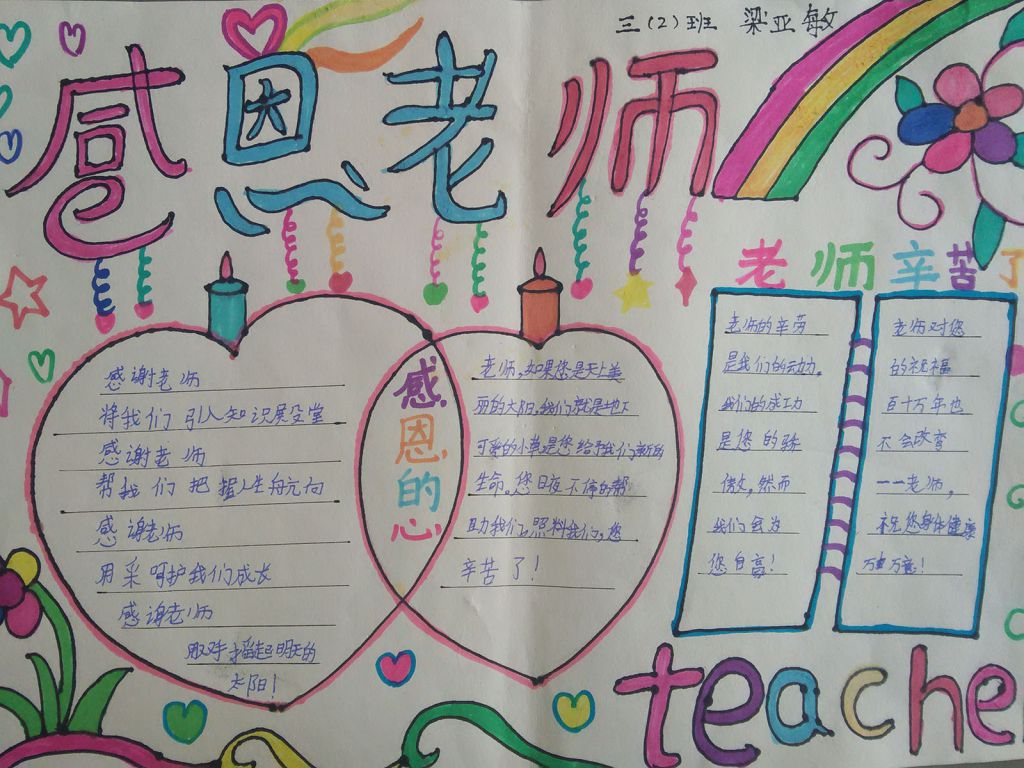 三(2)班 梁亚敏
感恩老师
老师辛苦了
感谢老师
将我们引入知识展受堂
感谢老师
帮我们把握人生航向
感谢老师
用采呵护我们成长
感谢老师
取对手播起明天的
太阳!
感恩的心
老师,如果您是天上美
丽的太阳,我们就是地下
可爱的小草是您给予我们新的
生命。您日夜不停的帮
助我们,照料我们,您
辛苦了!
老师的辛劳
是我们的动力。
我们的成功
是您的骄
傲,然而
我们会为
您自豪!
老师对您
的祝福
百十万年也
不会改变
一一老师,
祝您身体健康
万事万意!
teache